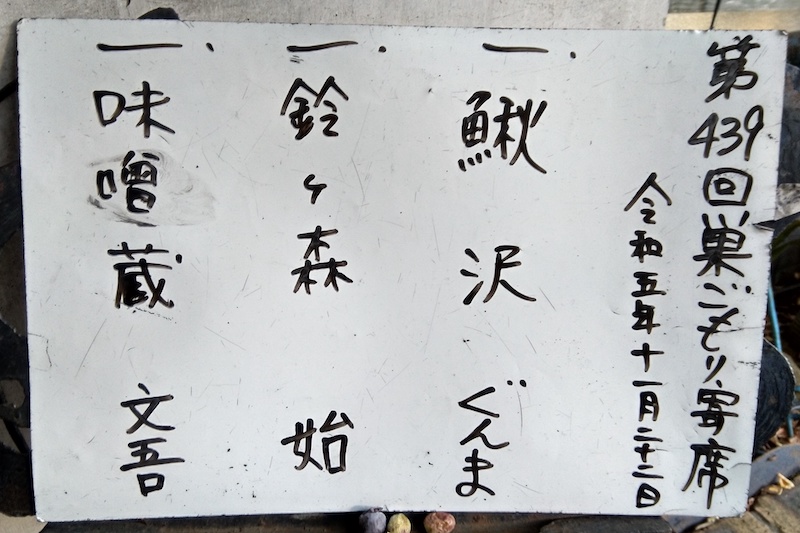 第439回巣ごもり寄席
令和五年十一月二十二日
一、鰍沢 ぐんま
一、鈴ヶ森 始
一、味噌蔵 文吾